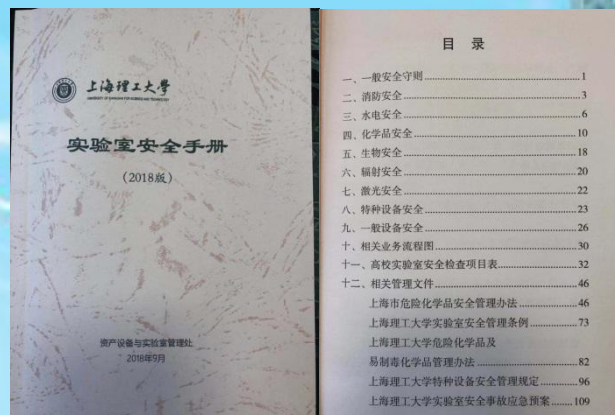 上海理工大学
UNIVERSITY OF SHANGHAI FOR SCIENCE AND TECHNOLOGY
实验室安全手册
(2018版)
资产设备与实验室管理处
2018年9月
目 录
一、一般安全守则 1
二、消防安全 3
三、水电安全 6
四、化学品安全 10
五、生物安全 18
六、辐射安全 20
七、激光安全 22
八、特种设备安全 23
九、一般设备安全 26
十、相关业务流程图 30
十一、高校实验室安全检查项目表 32
十二、相关管理文件 46
上海市危险化学品安全管理办法 46
上海理工大学实验室安全管理条例 73
上海理工大学危险化学品及
易制毒化学品管理办法 82
上海理工大学特种设备安全管理规定 96
上海理工大学实验室安全事故应急预案 109